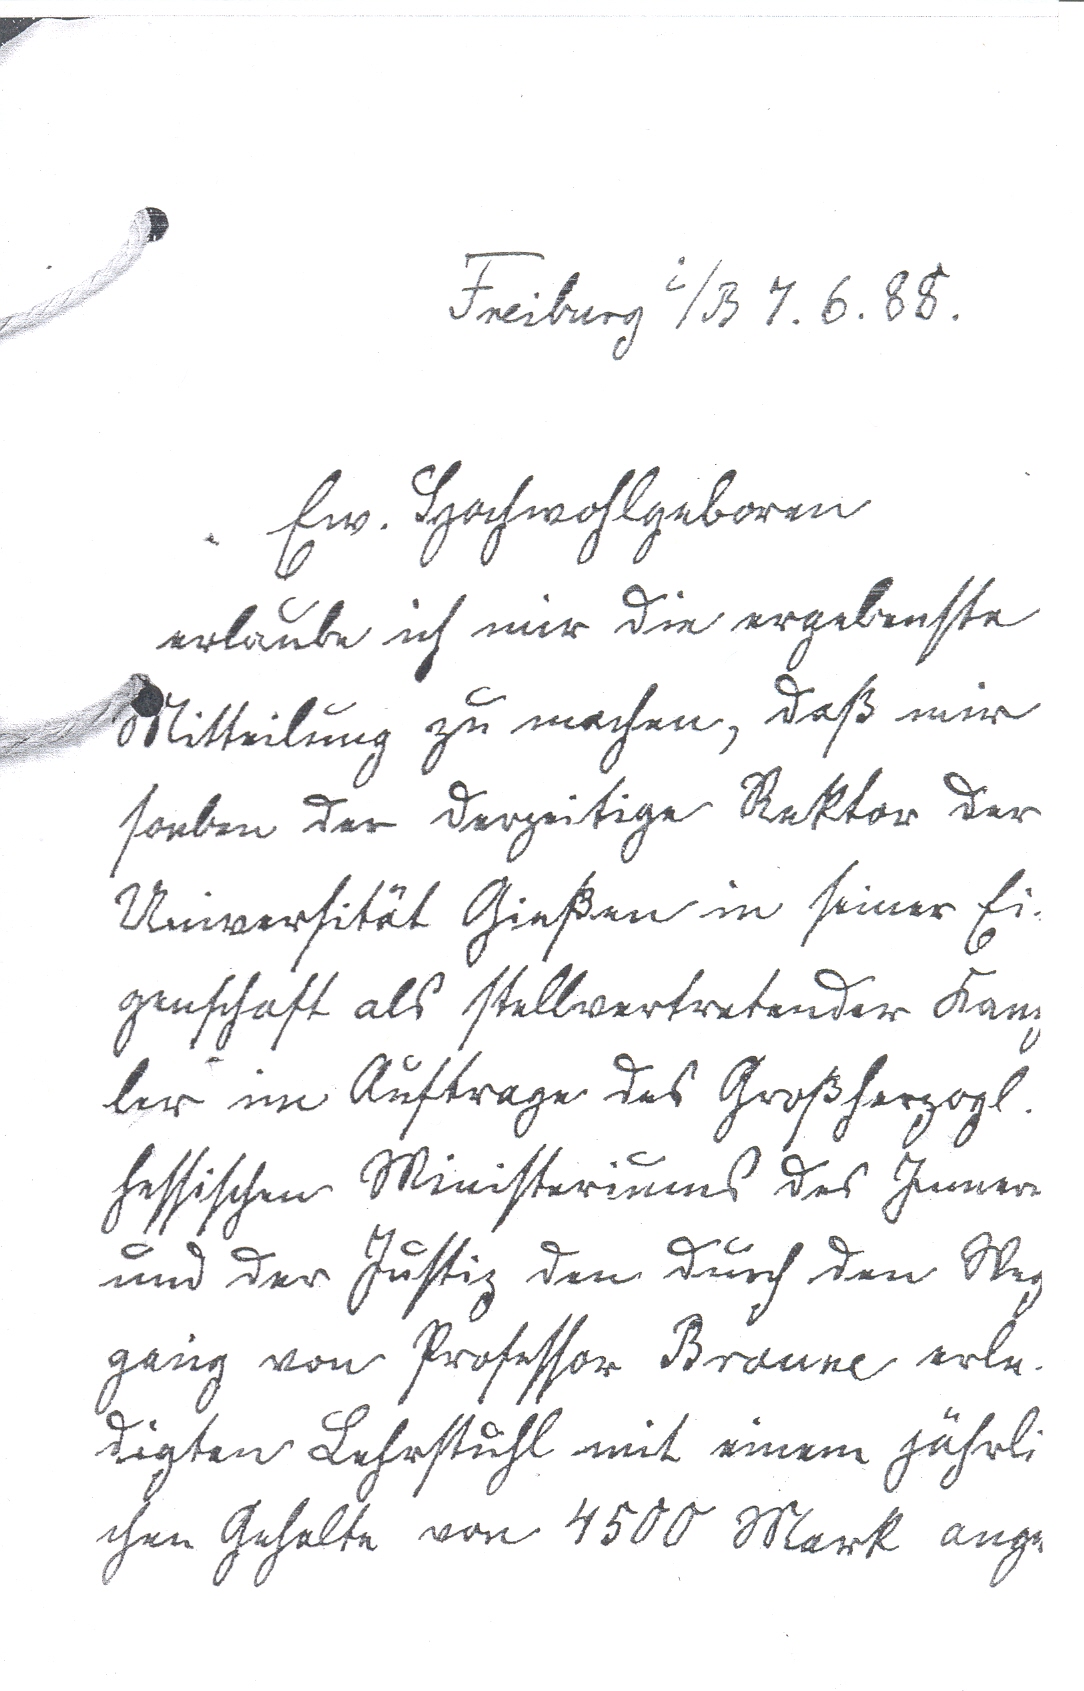 Freiburg i/B 7. 6. 88.
Ew. Hochwohlgeboren
erlaube ich mir die ergebenste
Mitteilung zu machen, daß mir
soeben der derzeitige Rektor der
Universität Gießen in seiner Ei-
genschaft als stellvertretender Kanz
ler im Auftrage des Großherzogl.
hessischen Ministeriums des Innern
und der Justiz den durch den Weg
gang von Professor Braune erle-
digten Lehrstuhl mit einem jährli
chen Gehalte von 4500 Mark ange